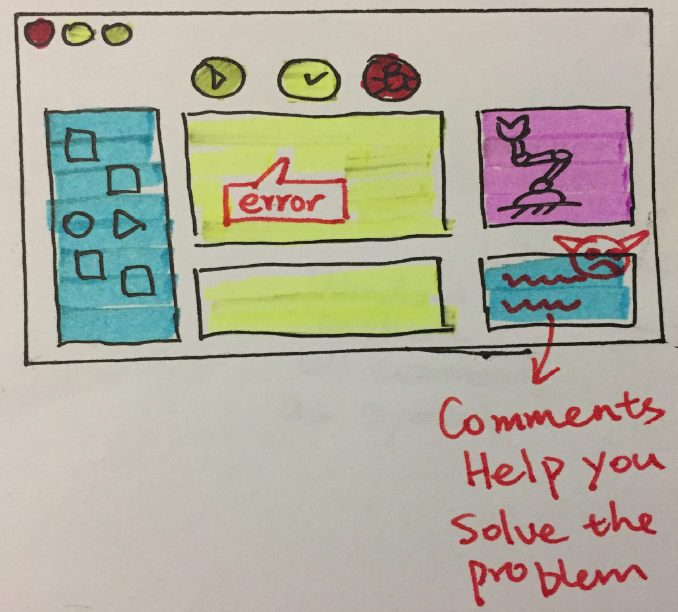 error
Comments
Help you
Solve the
problem